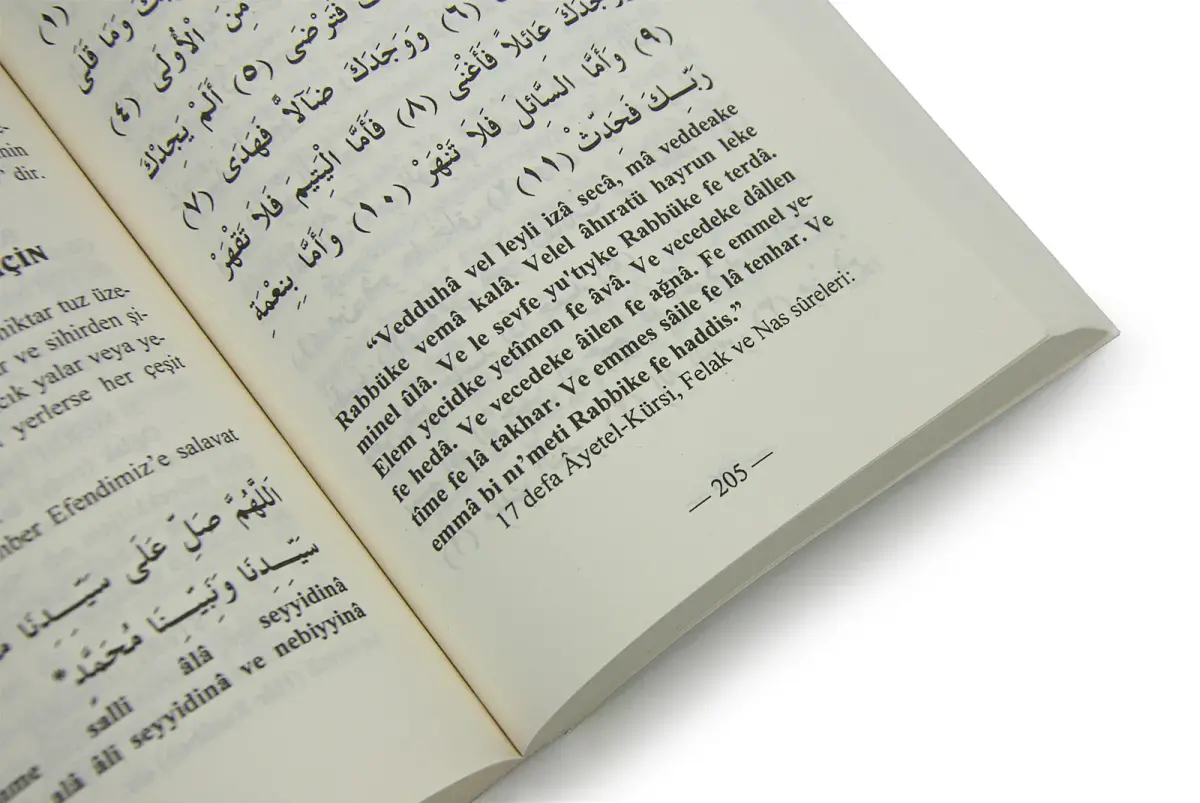 nin
dir.
ÇİN
miktar tuz üze-
ve sihirden şi-
yalar veya ye-
yerlerse her çeşit
Efendimiz’e salavat
اَللَّهُمَّ صَلِّ عَلَى سَيِّدِنَا
سَيِّدِنَا وَنَبِيِّنَا مُحَمَّدٍ *
salli âlâ seyyidinâ
alâ âli seyyidinâ ve nebiyyinâ
(١)
وَمَا قَلَى
مِنَ الْأُولَى (٤)
فَتَرْضَى (٥) أَلَمْ يَجِدْكَ
(٦) وَوَجَدَكَ ضَآلاًّ فَهَدَى (٧)
وَوَجَدَكَ عَائِلاً فَأَغْنَى (٨) فَأَمَّا الْيَتِيمَ فَلاَ تَقْهَرْ
(٩) وَأَمَّا السَّائِلَ فَلاَ تَنْهَرْ (١٠) وَأَمَّا بِنِعْمَةِ
رَبِّكَ فَحَدِّثْ (١١)
“Vedduhâ vel leyli izâ secâ, mâ veddeake
Rabbüke vemâ kalâ. Velel âhıratü hayrun leke
minel ûlâ. Ve le sevfe yu’tıyke Rabbüke fe terdâ.
Elem yecidke yetîmen fe âvâ. Ve vecedeke dâllen
fe hedâ. Ve vecedeke âilen fe ağnâ. Fe emmel ye-
tîme fe lâ takhar. Ve emmes sâile fe lâ tenhar. Ve
emmâ bi nı’meti Rabbike fe haddis.”
17 defa Âyetel-Kürsi, Felak ve Nas sûreleri:
— 205 —